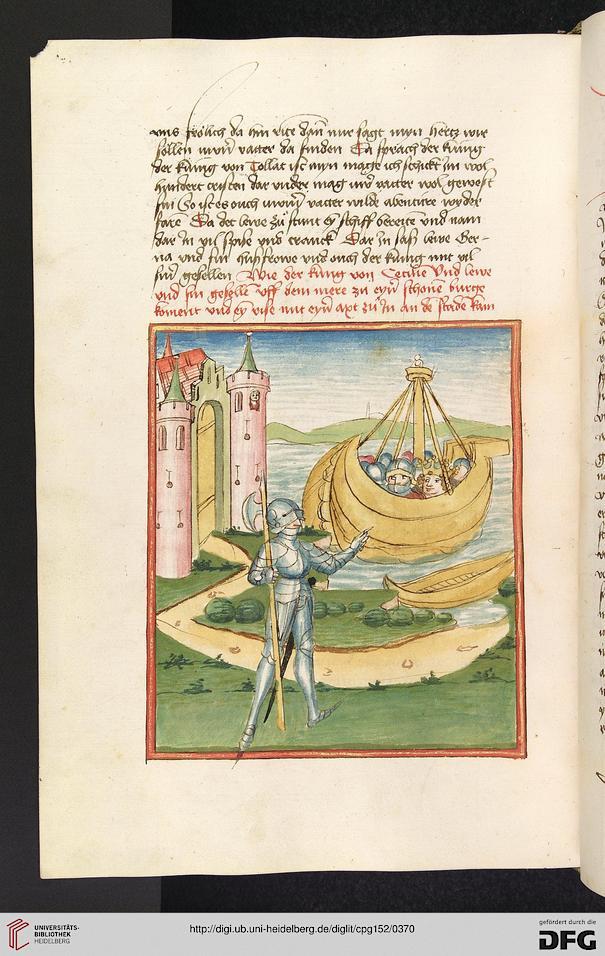 uns frölich da hin rite dan mir sagt myn hertz wir
sollen uwern vatter da finden Da sprach der kunig
der kunig von Tollat ist myn mage ich schickt im wol
hundert cristen dar under mag uwer vatter wol gewest
sin So ist es ouch uwerm vatter wilde abenture wyder
fare Da det lewe zu stunt ey schiff bereite und nam
dar in vil spise und tranck Dar in sass lewe Ger-
na und sin husfrowe und ouch der kunig mit vil
siner gesellen Wie der kunig von Cecilie Und lewe
und sin geselle uff dem mere zu eyner schone burge
koment und ey rise mit eyner axt zu in an de stade kam
UNIVERSITÄTS-
BIBLIOTHEK
HEIDELBERG
http://digi.ub.uni-heidelberg.de/diglit/cpg152/0370
gefördert durch die
DFG